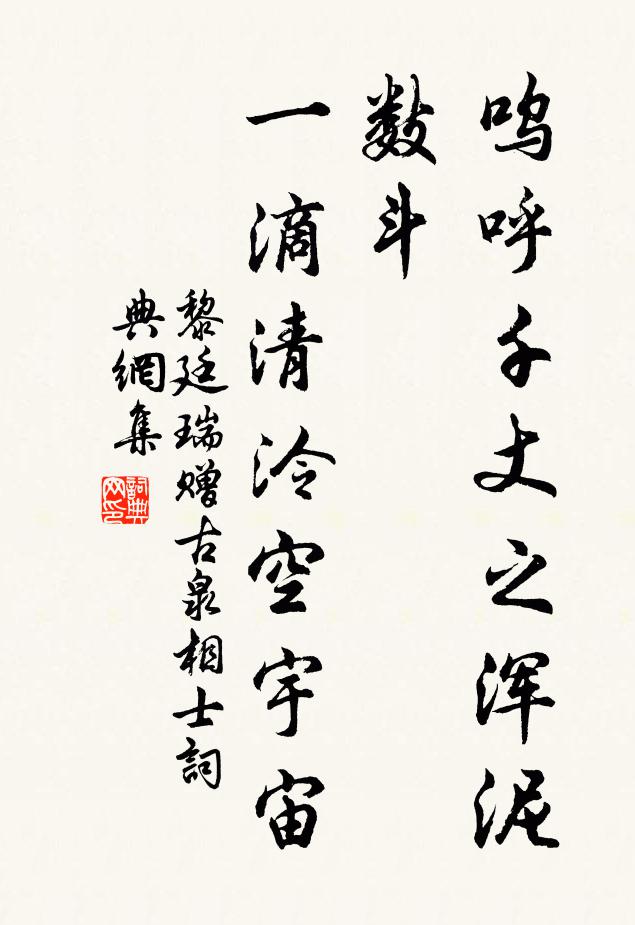 呜呼千丈之浑泥
数斗
一滴清泠空宇宙
黎廷瑞赠古泉相士詞
典網集
詞典网印